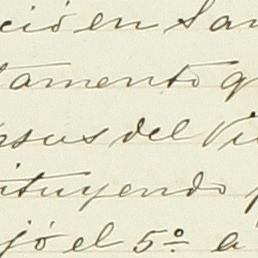 ció en San
tamento q
rsos del Vi
ituyendo p
jó el 5º a